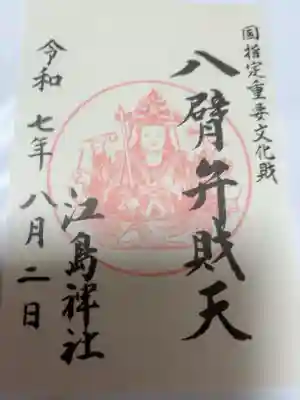 国指定重要文化財
八臂弁財天
江島神社
令和七年八月二日